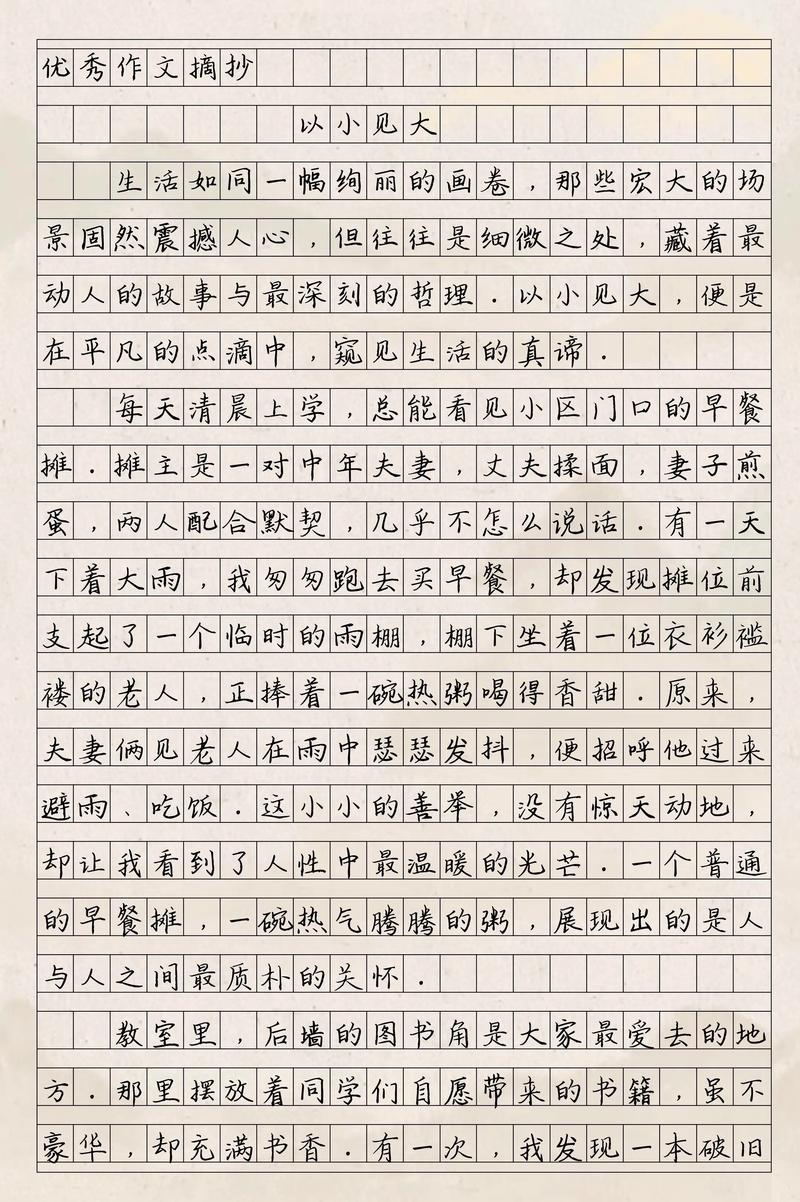 优秀作文摘抄
以小见大
生活如同一幅绚丽的画卷，那些宏大的场
景固然震撼人心，但往往是细微之处，藏着最
动人的故事与最深刻的哲理．以小见大，便是
在平凡的点滴中，窥见生活的真谛．
每天清晨上学，总能看见小区门口的早餐
摊．摊主是一对中年夫妻，丈夫揉面，妻子煎
蛋，两人配合默契，几乎不怎么说话．有一天
下着大雨，我匆匆跑去买早餐，却发现摊位前
支起了一个临时的雨棚，棚下坐着一位衣衫褴
褛的老人，正捧着一碗热粥喝得香甜．原来，
夫妻俩见老人在雨中瑟瑟发抖，便招呼他过来
避雨、吃饭．这小小的善举，没有惊天动地，
却让我看到了人性中最温暖的光芒．一个普通
的早餐摊，一碗热气腾腾的粥，展现出的是人
与人之间最质朴的关怀．
教室里，后墙的图书角是大家最爱去的地
方．那里摆放着同学们自愿带来的书籍，虽不
豪华，却充满书香．有一次，我发现一本破旧